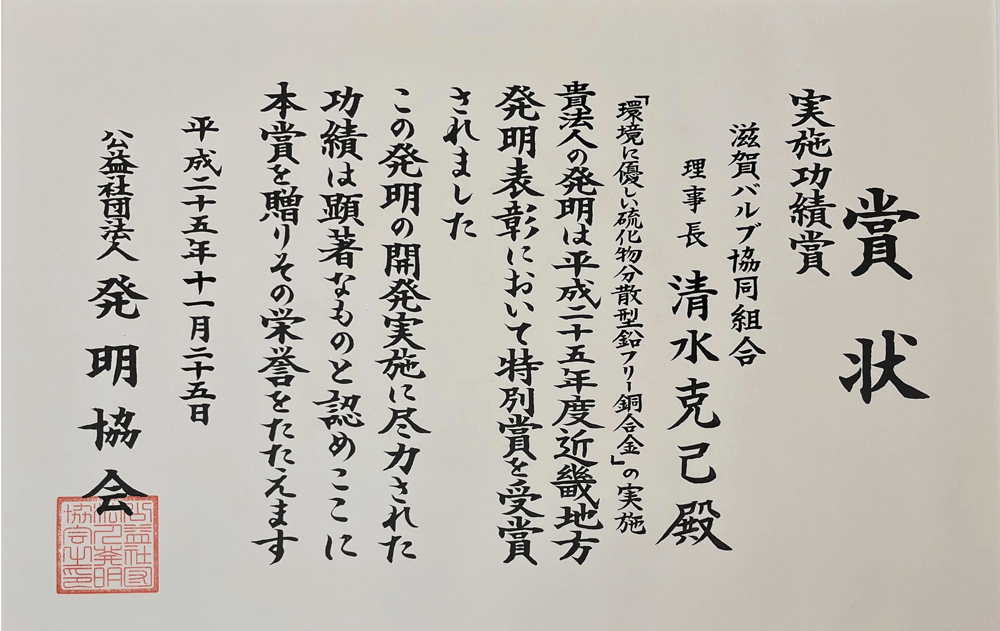 賞状
実施功績賞
滋賀バルブ協同組合
理事長 清水克己殿
「環境に優しい硫化物分散型鉛フリー銅合金」の実施
貴法人の発明は平成二十五年度近畿地方
発明表彰において特別賞を受賞
されました
この発明の開発実施に尽力された
功績は顕著なものと認めここに
本賞を贈りその栄誉をたたえます
平成二十五年十一月二十五日
公益社団法人 発明協会
公益社団
法人発明
協会之印